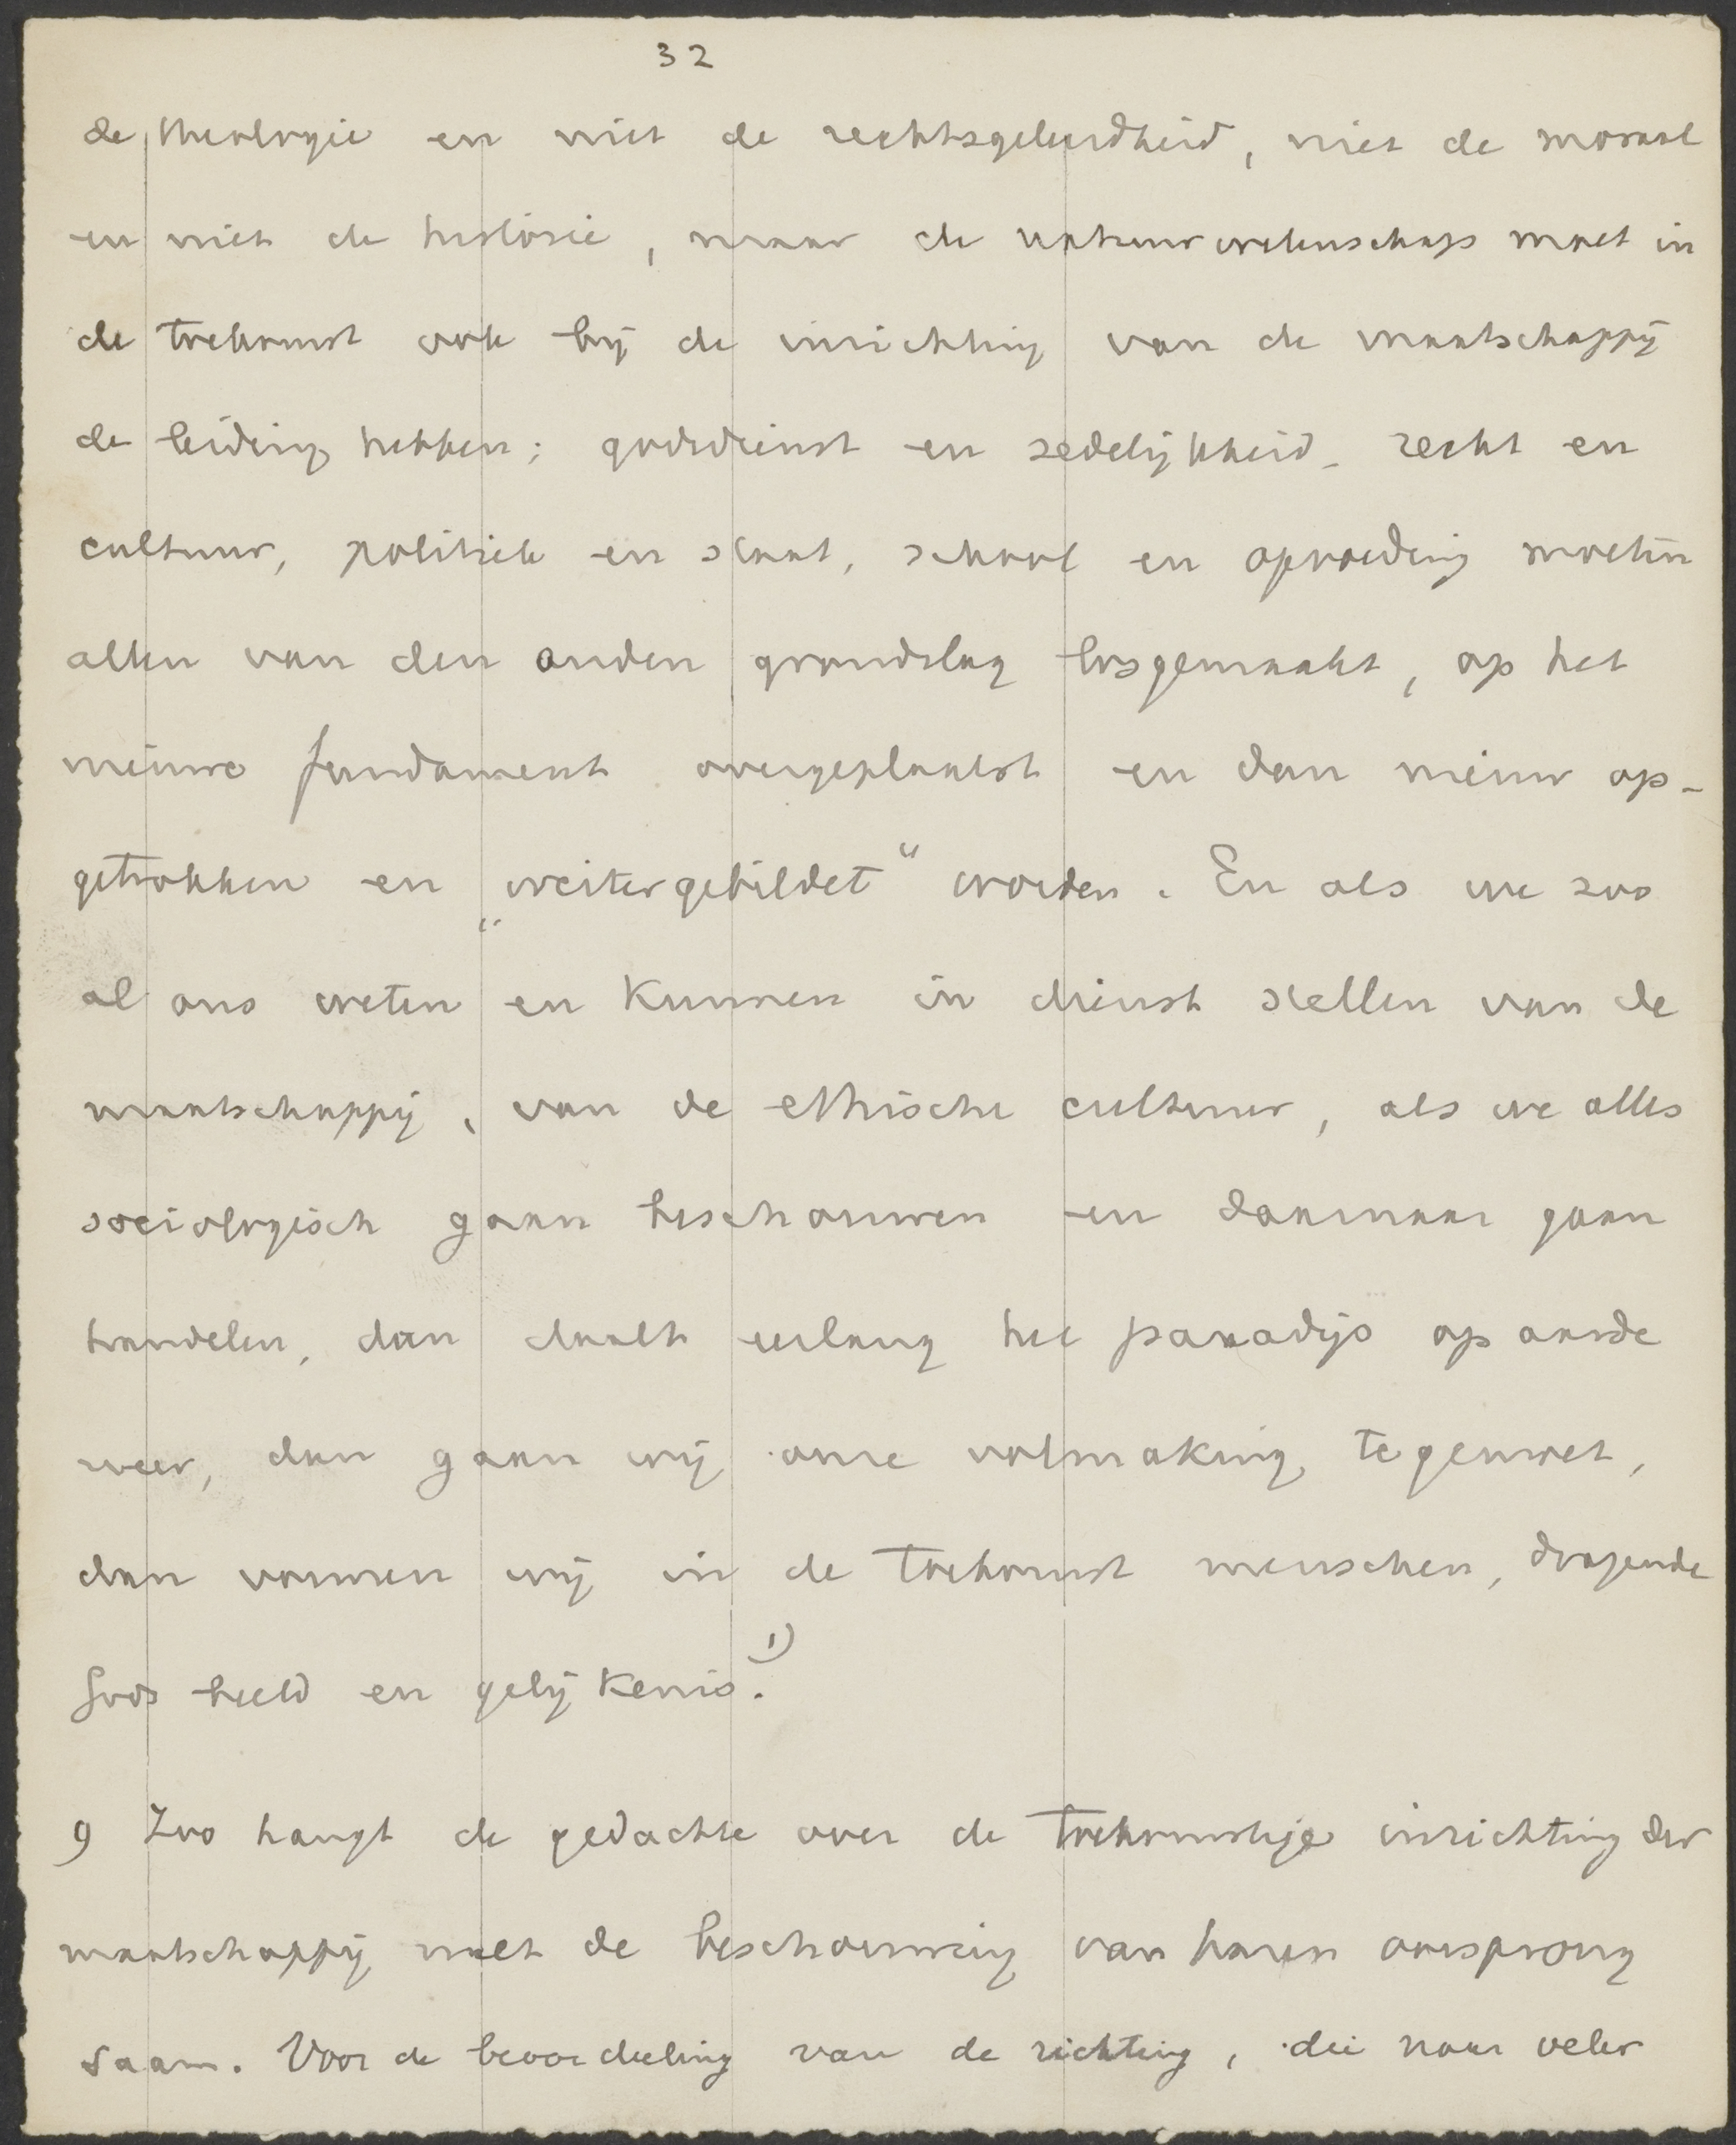 32
de theologie en niet de rechtsgeleerdheid, niet de moraal
en niet de historie, maar de natuurwetenschap moet in
de toekomst ook bij de inrichting van de maatschappij
de leiding hebben; godsdienst en zedelijkheid, recht en
cultuur, politiek en staat, school en opvoeding moeten
allen van den ouden grondslag losgemaakt, op het
nieuwe fundament overgeplaatst en dan nieuw op-
getrokken en „weitergebildet“ worden. En als we zoo
al ons weten en kunnen in dienst stellen van de
maatschappij, van de ethische cultuur, als we alles
sociologisch gaan beschouwen en daarnaar gaan
handelen, dan daalt eerlang het paradijs op aarde
weer, dan gaan wij onze volmaking tegemoet,
dan vormen wij in de toekomst menschen, dragende
Gods beeld en gelijkenis.1)
9 Zoo hangt de gedachte over de toekomstige inrichting der
maatschappij met de beschouwing van haren oorsprong
saam. Voor de beoordeeling van de richting, die naar veler